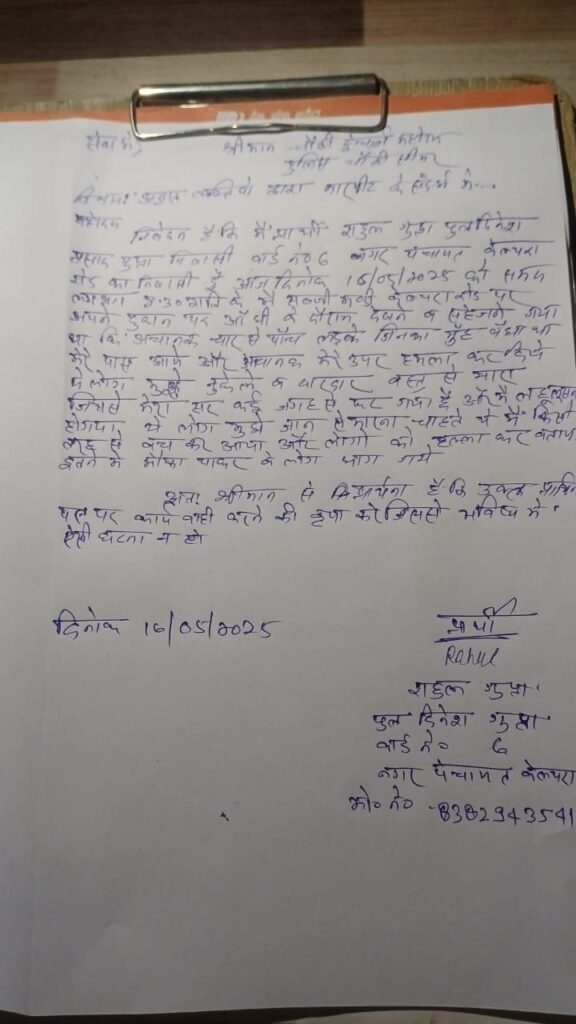 सेवा में,
श्रीमान चौकी इन्चार्ज महोदय
पुलिस चौकी
विषय: अज्ञात व्यक्तियो द्वारा मारपीट के संदर्भ मे...
महोदय
निवेदन है कि मैं प्रार्थी राहुल गुप्ता पुत्र दिनेश
प्रसाद गुप्ता निवासी वार्ड नं० 6 नगर पंचायत केल्परा
रोड का निवासी हूँ आज दिनांक 16/05/2025 को समय
लगभग 8:30 रात्रि के मै सब्जी मन्डी रोड पर
अपने दुकान पर आँधी के दौरान देखने व सहेजने गया
था कि अचानक चार से पाँच लड़के जिनका मुँह बँधा था
मेरे पास आये और अचानक मेरे उपर हमला कर दिये
ये लोग मुझे नुकीले व धारदार वस्तु से मारा
जिससे मेरा सर कई जगह से फट गया है और मै लहुलुहान
होगया ये लोग मुझे जान से मारना चाहते थे मै किसी
तरह से बच कर आया और लोगो को हल्ला कर बताया
इतने मे मौका पाकर वे लोग भाग गये
अतः श्रीमान से प्रार्थना है कि उक्त प्रार्थना
पत्र पर कार्यवाही करने की कृपा करे जिससे भविष्य मे
ऐसी घटना न हो
दिनांक 16/05/2025
प्रार्थी
Rahul
राहुल गुप्ता
पुत्र दिनेश गुप्ता
वार्ड नं० 6
नगर पंचायत केल्परा
मो० नं० - 8382943541